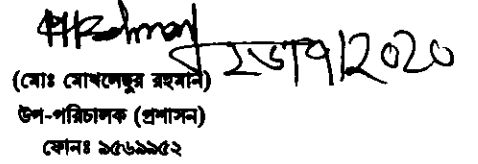 (মোঃ মোখলেছুর রহমান)
উপ-পরিচালক (প্রশাসন)
ফোনঃ ৯৫৬৯৯৫২